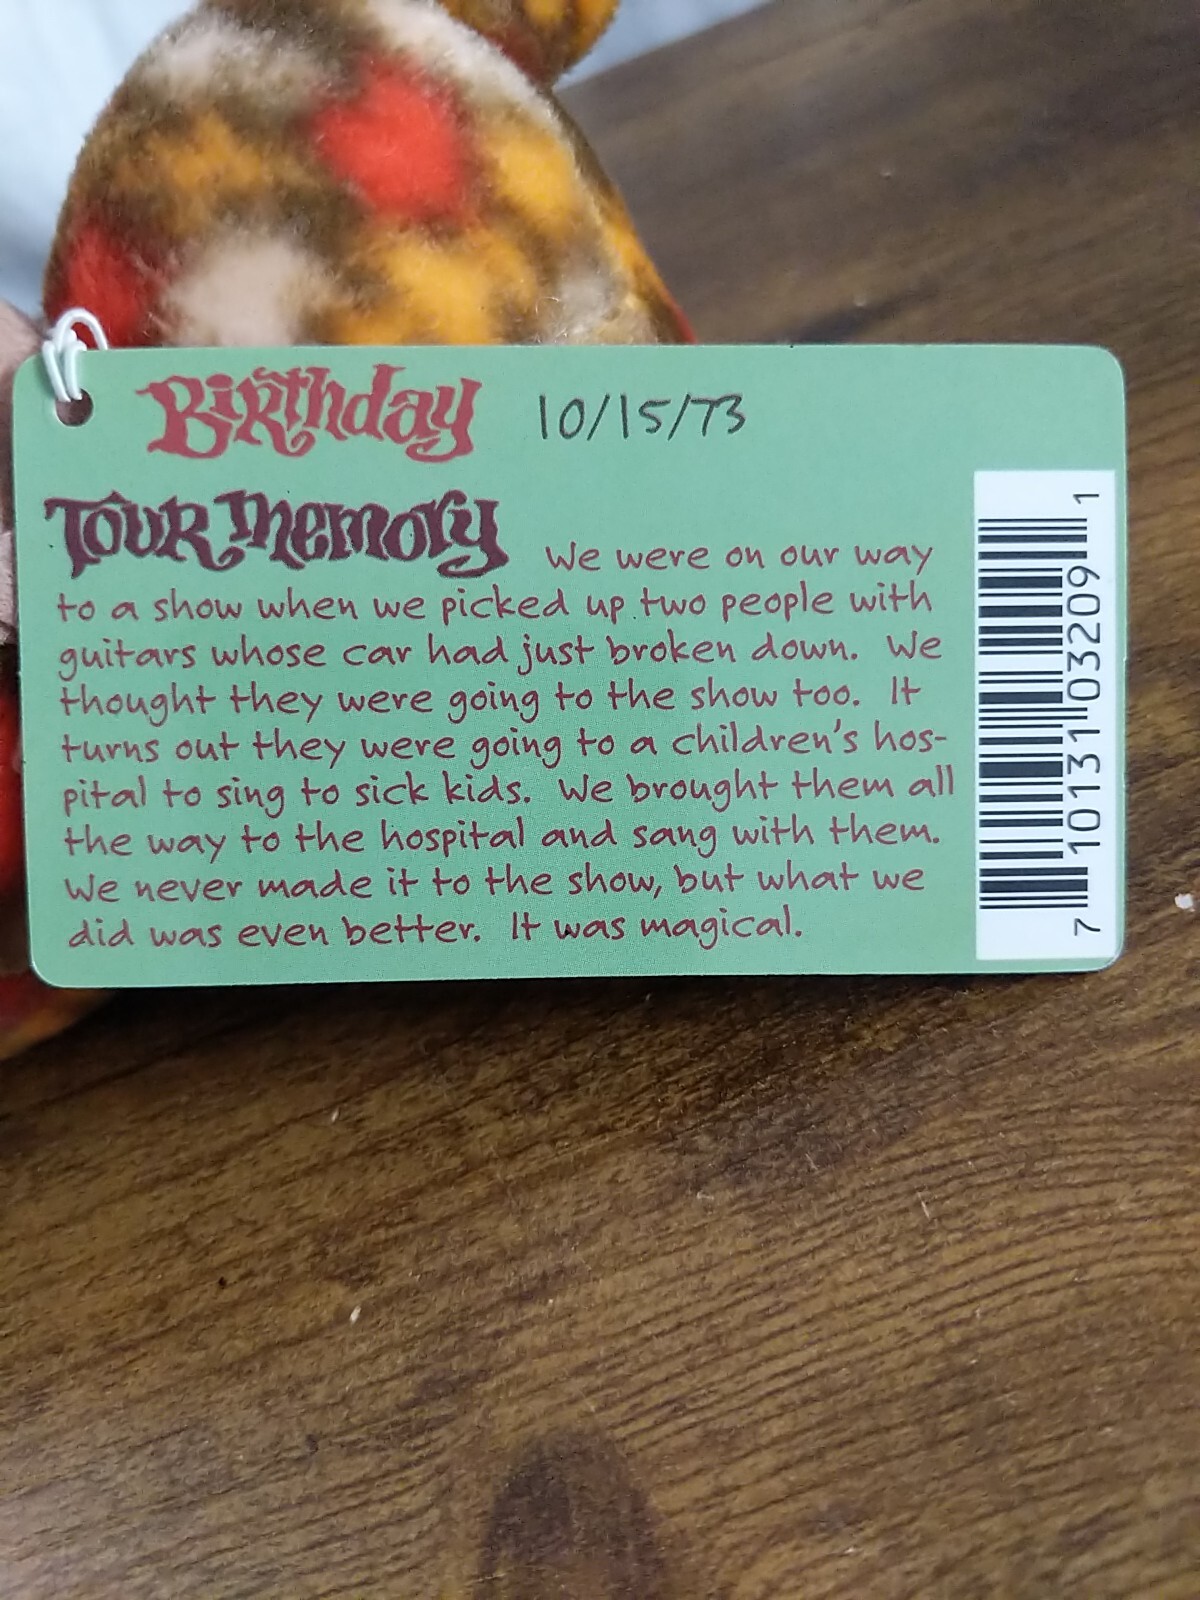 Birthday 10/15/73
Tour Memory We were on our way
to a show when we picked up two people with
guitars whose car had just broken down. We
thought they were going to the show too. It
turns out they were going to a children's hos-
pital to sing to sick kids. We brought them all
the way to the hospital and sang with them.
We never made it to the show, but what we
did was even better. It was magical.
7 10131 03209 1